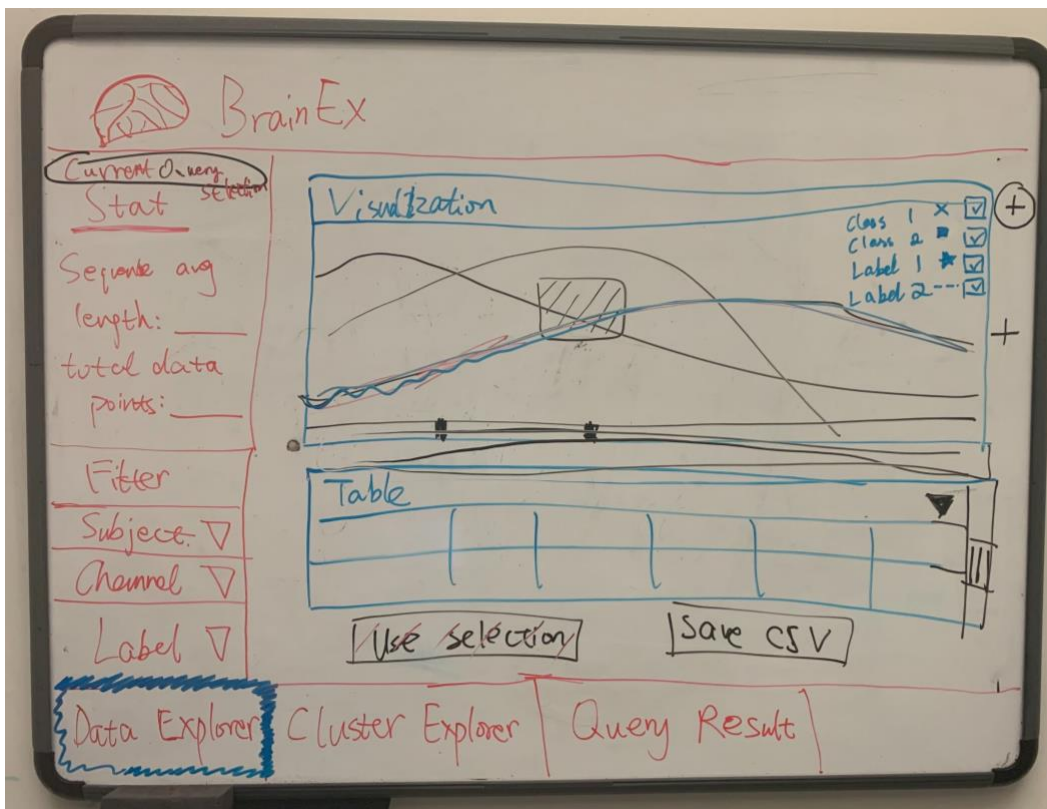 BrainEx
Current Query
selection
Stat
Sequence avg
length:
total data
points:
Filter
Subject
Channel
Label
Visulization
Class 1
Class 2
Label 1
Label 2
Table
Use selection
Save CSV
Data Explorer
Cluster Explorer
Query Result